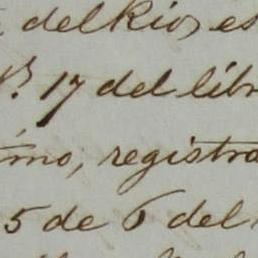 del Rio, es
Nº. 17 del libr
imo, registra
5 de 6 del